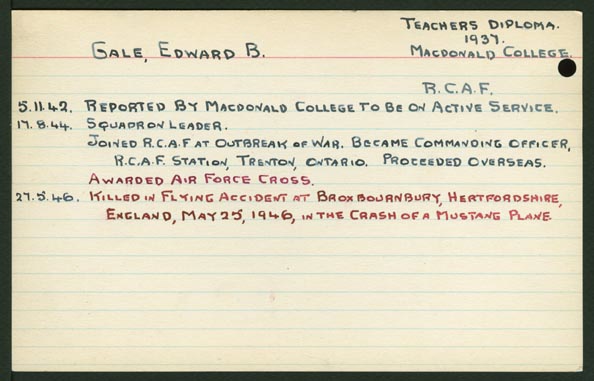 TEACHERS DIPLOMA.
1937.
GALE, EDWARD B.
MACDONALD COLLEGE.
R.C.A.F.
5.11.42. REPORTED BY MACDONALD COLLEGE TO BE ON ACTIVE SERVICE.
17.8.44. SQUADRON LEADER.
JOINED R.C.A.F AT OUTBREAK OF WAR. BECAME COMMANDING OFFICER,
R.C.A.F. STATION, TRENTON, ONTARIO. PROCEEDED OVERSEAS.
AWARDED AIR FORCE CROSS.
27.5.46. KILLED IN FLYING ACCIDENT AT BROXBOURNBURY, HERTFORDSHIRE,
ENGLAND, MAY 25, 1946, IN THE CRASH OF A MUSTANG PLANE